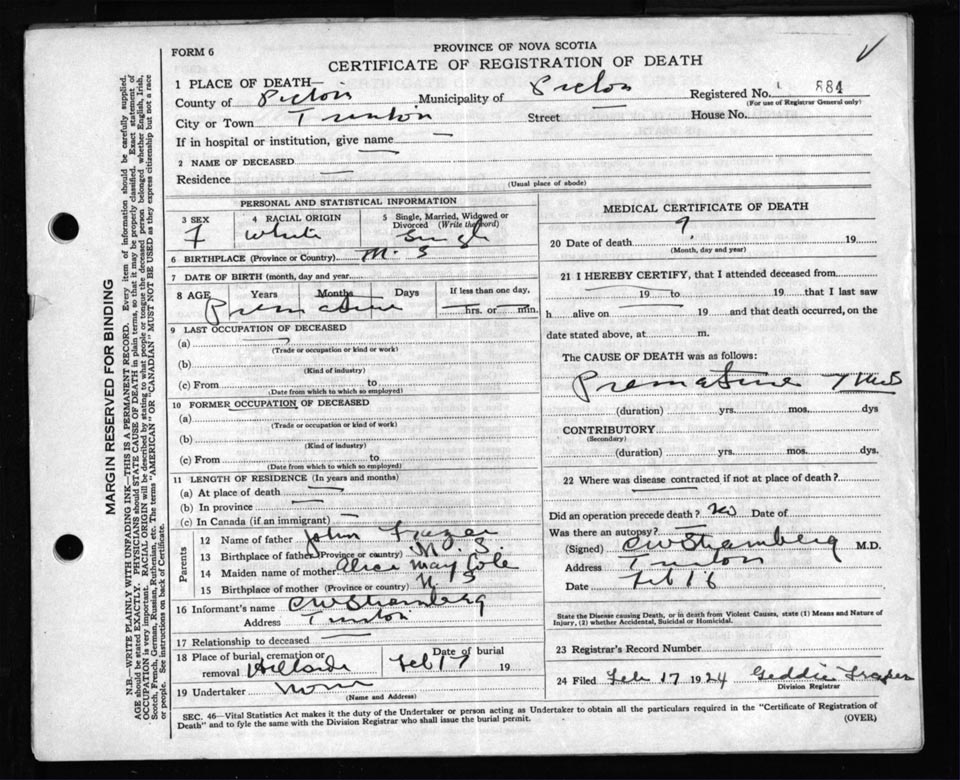 FORM 6
PROVINCE OF NOVA SCOTIA
CERTIFICATE OF REGISTRATION OF DEATH
1 PLACE OF DEATH—
County of Pictou Municipality of Pictou Registered No. 884
(For use of Registrar General only)
City or Town Trenton Street House No.
If in hospital or institution, give name —
2 NAME OF DECEASED —
Residence —
(Usual place of abode)
PERSONAL AND STATISTICAL INFORMATION
3 SEX 4 RACIAL ORIGIN 5 Single, Married, Widowed or Divorced (Write the word)
F White Single
6 BIRTHPLACE (Province or Country) N. S
7 DATE OF BIRTH (month, day and year)
8 AGE Years Months Days If less than one day,
Premature hrs. or min.
9 LAST OCCUPATION OF DECEASED
(a)
(Trade or occupation or kind or work)
(b)
(Kind of industry)
(c) From to
(Date from which to which so employed)
10 FORMER OCCUPATION OF DECEASED
(a)
(Trade or occupation or kind of work)
(b)
(Kind of industry)
(c) From to
(Date from which to which so employed)
11 LENGTH OF RESIDENCE (In years and months)
(a) At place of death —
(b) In province —
(c) In Canada (if an immigrant) —
Parents
12 Name of father John Frazer
13 Birthplace of father (Province or country) N. S.
14 Maiden name of mother Alice May Cole
15 Birthplace of mother (Province or country) N S
16 Informant's name
Address Trenton
17 Relationship to deceased —
18 Place of burial, cremation or removal Date of burial
Feb 17 19
19 Undertaker None
(Name and Address)
MEDICAL CERTIFICATE OF DEATH
20 Date of death ? 19
(Month, day and year)
21 I HEREBY CERTIFY, that I attended deceased from
19 to 19 that I last saw
h alive on 19 and that death occurred, on the
date stated above, at m.
The CAUSE OF DEATH was as follows:
Premature
(duration) yrs. mos. dys
CONTRIBUTORY
(Secondary)
(duration) yrs. mos. dys.
22 Where was disease contracted if not at place of death?
Did an operation precede death? No Date of
Was there an autopsy? —
(Signed) M.D.
Address Trenton
Date Feb 16
State the Disease causing Death, or in death from Violent Causes, state (1) Means and Nature of
Injury, (2) whether Accidental, Suicidal or Homicidal.
23 Registrar's Record Number
24 Filed Feb 17 1924 Geddie Fraser
Division Registrar
SEC. 46—Vital Statistics Act makes it the duty of the Undertaker or person acting as Undertaker to obtain all the particulars required in the "Certificate of Registration of
Death" and to fyle the same with the Division Registrar who shall issue the burial permit.
(OVER)
MARGIN RESERVED FOR BINDING
N.B.—WRITE PLAINLY WITH UNFADING INK—THIS IS A PERMANENT RECORD. Every item of information should be carefully supplied.
AGE should be stated EXACTLY. PHYSICIANS should STATE CAUSE OF DEATH in plain terms, so that it may be properly classified. Exact statement of
OCCUPATION is very important. RACIAL ORIGIN will be described by stating to what people or tongue the deceased person belonged whether English, Irish,
Scotch, French, German, Russian, Ruthenian, etc. The terms "AMERICAN" or "CANADIAN" MUST NOT BE USED as they express citizenship but not a race
or people. See instructions on back of Certificate.